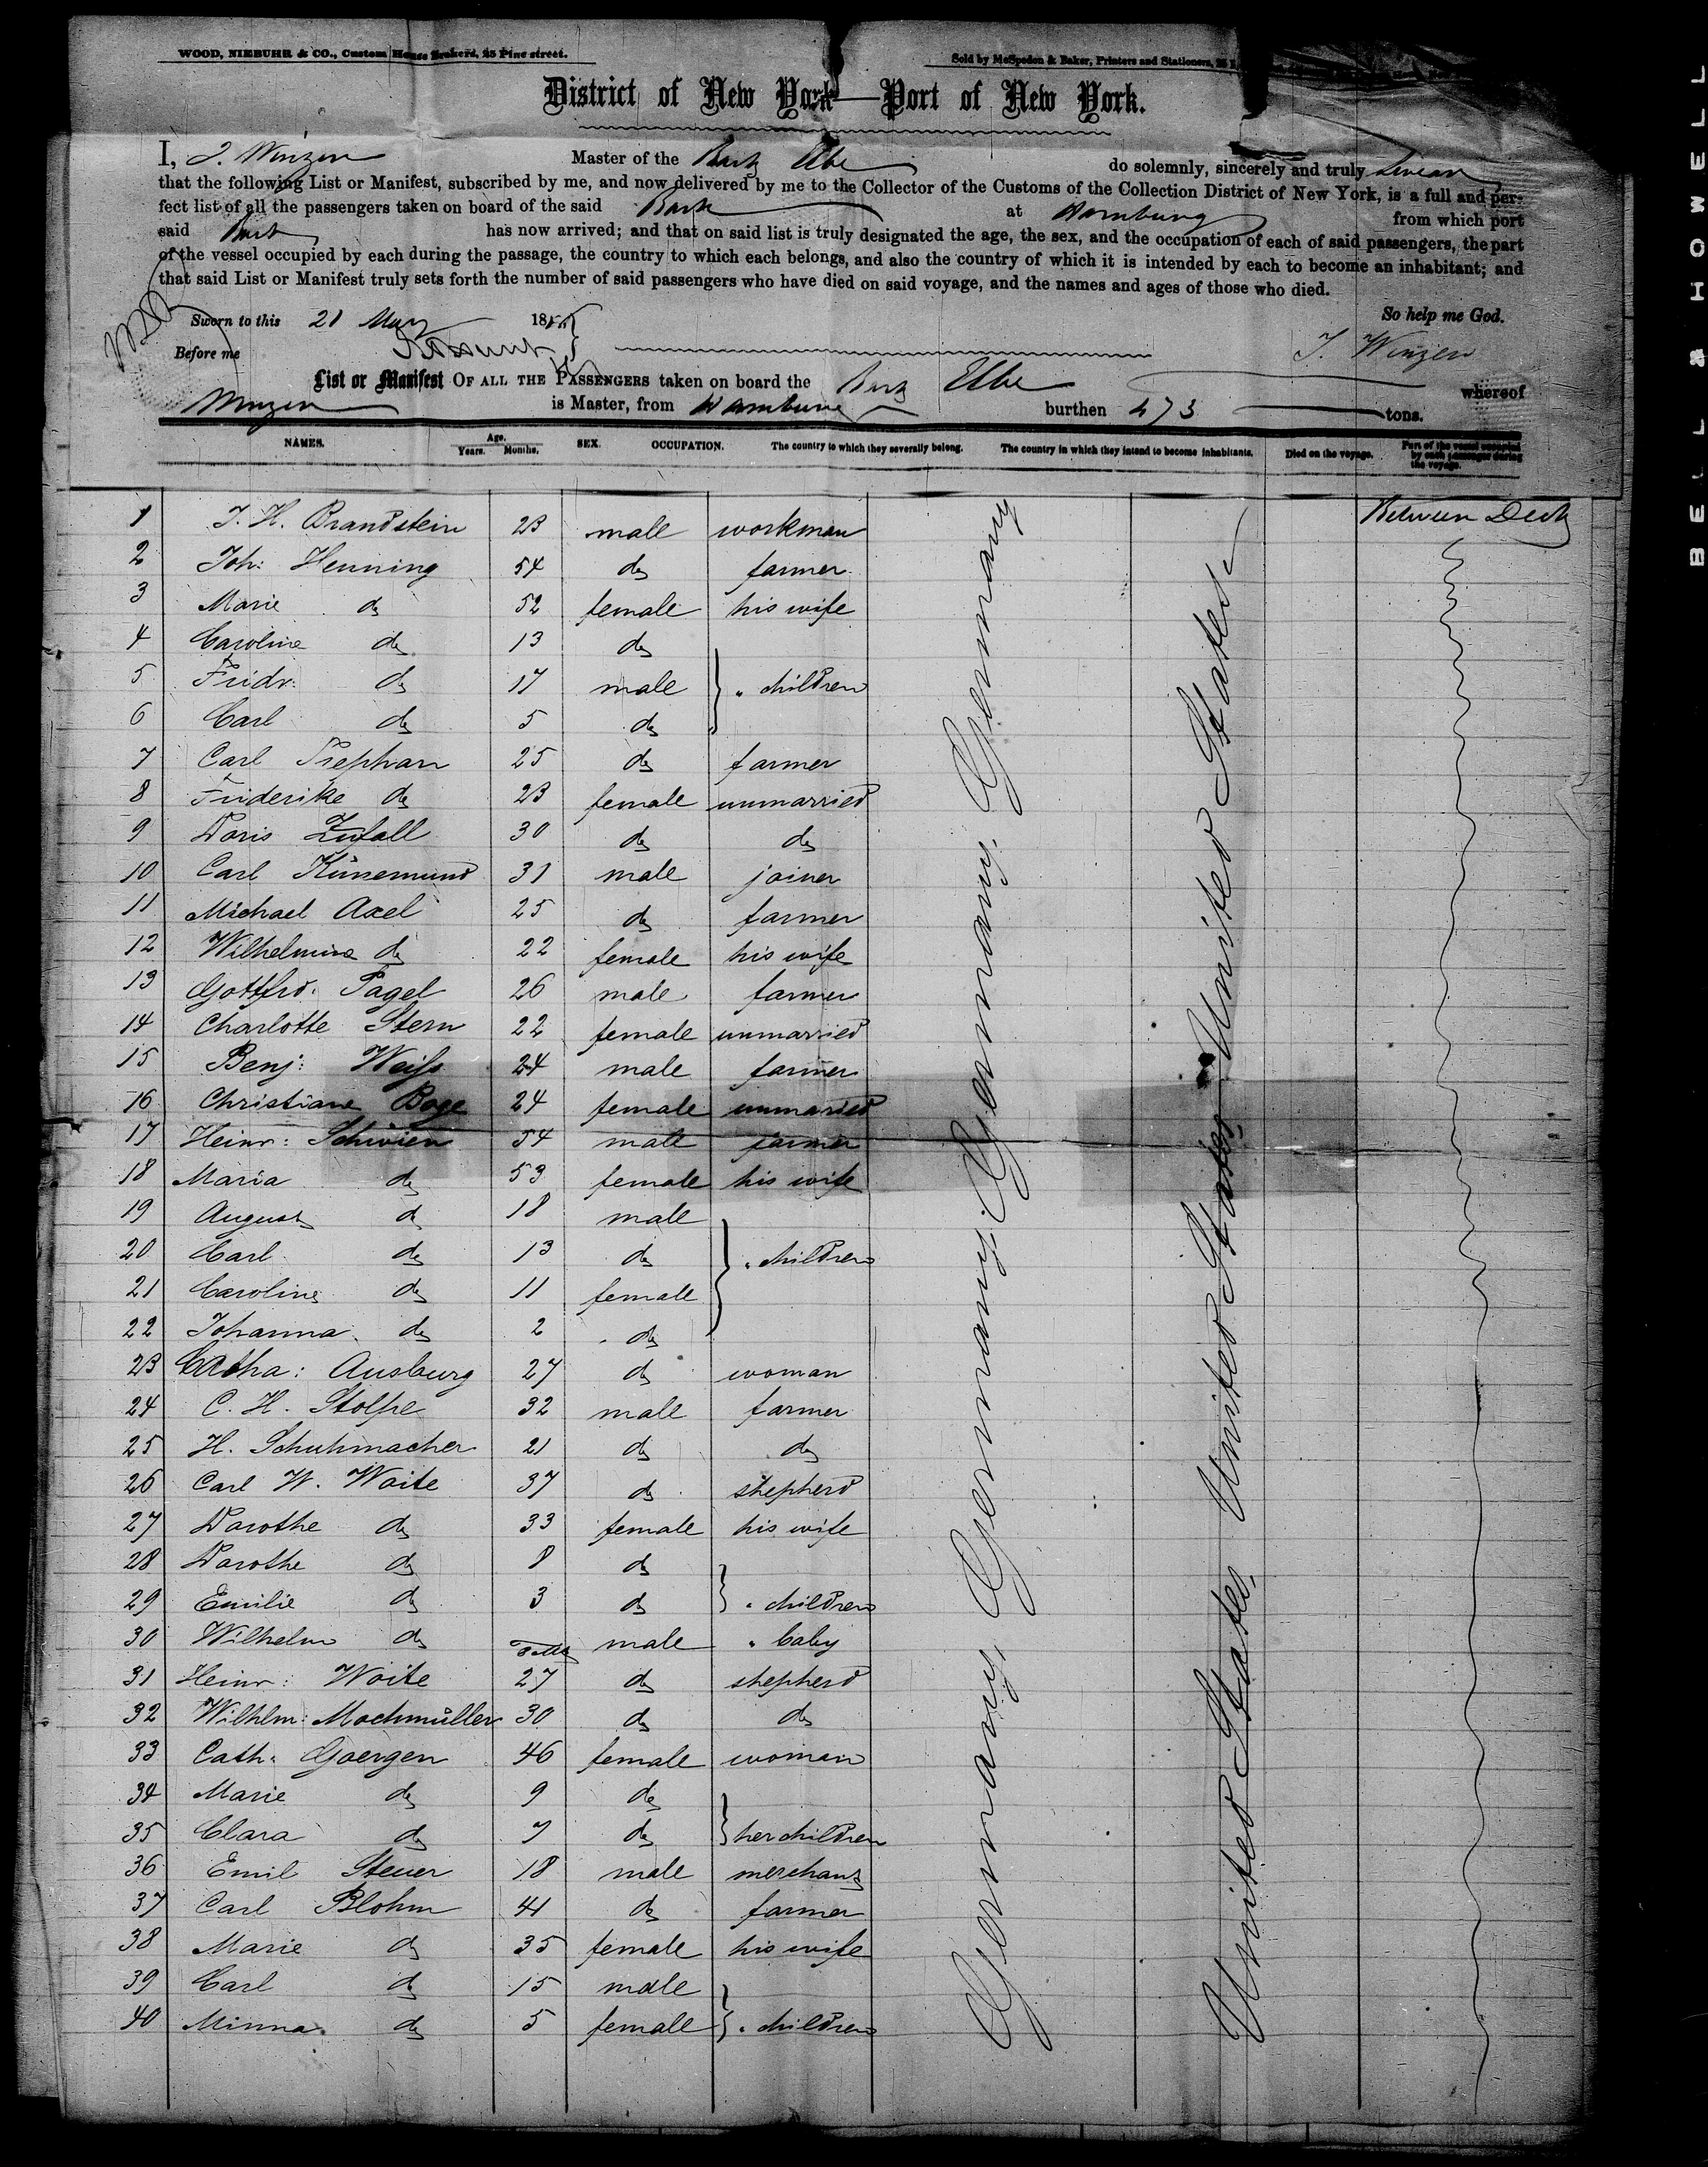 WOOD, NIEBUHR & CO., Custom House Brokers, 25 Pine street.
Sold by McSpedon & Baker, Printers and Stationers, 25
District of New York—Port of New York.
I, J. Winzen Master of the Bark Elbe do solemnly, sincerely and truly swear
that the following List or Manifest, subscribed by me, and now delivered by me to the Collector of the Customs of the Collection District of New York, is a full and per-
fect list of all the passengers taken on board of the said Bark at Hamburg from which port
said Bark has now arrived; and that on said list is truly designated the age, the sex, and the occupation of each of said passengers, the part
of the vessel occupied by each during the passage, the country to which each belongs, and also the country of which it is intended by each to become an inhabitant; and
that said List or Manifest truly sets forth the number of said passengers who have died on said voyage, and the names and ages of those who died.
Sworn to this 21 May 185 So help me God.
Before me J. Winzen
List or Manifest OF ALL THE PASSENGERS taken on board the Bark Elbe whereof
Winzen is Master, from Hamburg burthen 473 tons.
NAMES. Age. Years. Months. SEX. OCCUPATION. The country to which they severally belong. The country in which they intend to become inhabitants. Died on the voyage. Part of the vessel occupied by each passenger during the voyage.
1 J. H. Brandstein 23 male workman Between Deck
2 Joh: Henning 54 do farmer
3 Marie do 52 female his wife
4 Caroline do 13 do
5 Fridr: do 17 male " children
6 Carl do 5 do
7 Carl Stephan 25 do farmer
8 Friderike do 23 female unmarried
9 Doris Zufall 30 do do
10 Carl Künemund 31 male joiner
11 Michael Axel 25 do farmer
12 Wilhelmine do 22 female his wife
13 Gottfrd. Pagel 26 male farmer
14 Charlotte Stern 22 female unmarried
15 Benj: Weiss 24 male farmer
16 Christiane Boge 24 female unmaried
17 Heinr: Schwien 54 male farmer
18 Maria do 53 female his wife
19 August do 18 male
20 Carl do 13 do " children
21 Caroline do 11 female
22 Johanna do 2 do
23 Catha: Ausburg 27 do woman
24 C. H. Stolpe 32 male farmer
25 H. Schuhmacher 21 do do
26 Carl W. Woite 37 do shepherd
27 Dorothe do 33 female his wife
28 Dorothe do 8 do
29 Emilie do 3 do " children
30 Wilhelm do male " baby
31 Heinr: Woite 27 do shepherd
32 Wilhlm: Mochmüller 30 do do
33 Cath: Goergen 46 female woman
34 Marie do 9 do
35 Clara do 7 do her children
36 Emil Steuer 18 male merchant
37 Carl Blohm 41 do farmer
38 Marie do 35 female his wife
39 Carl do 15 male
40 Minna do 5 female " children
Germany, Germany, Germany, Germany
United States, United States, United States
BELL & HOWELL